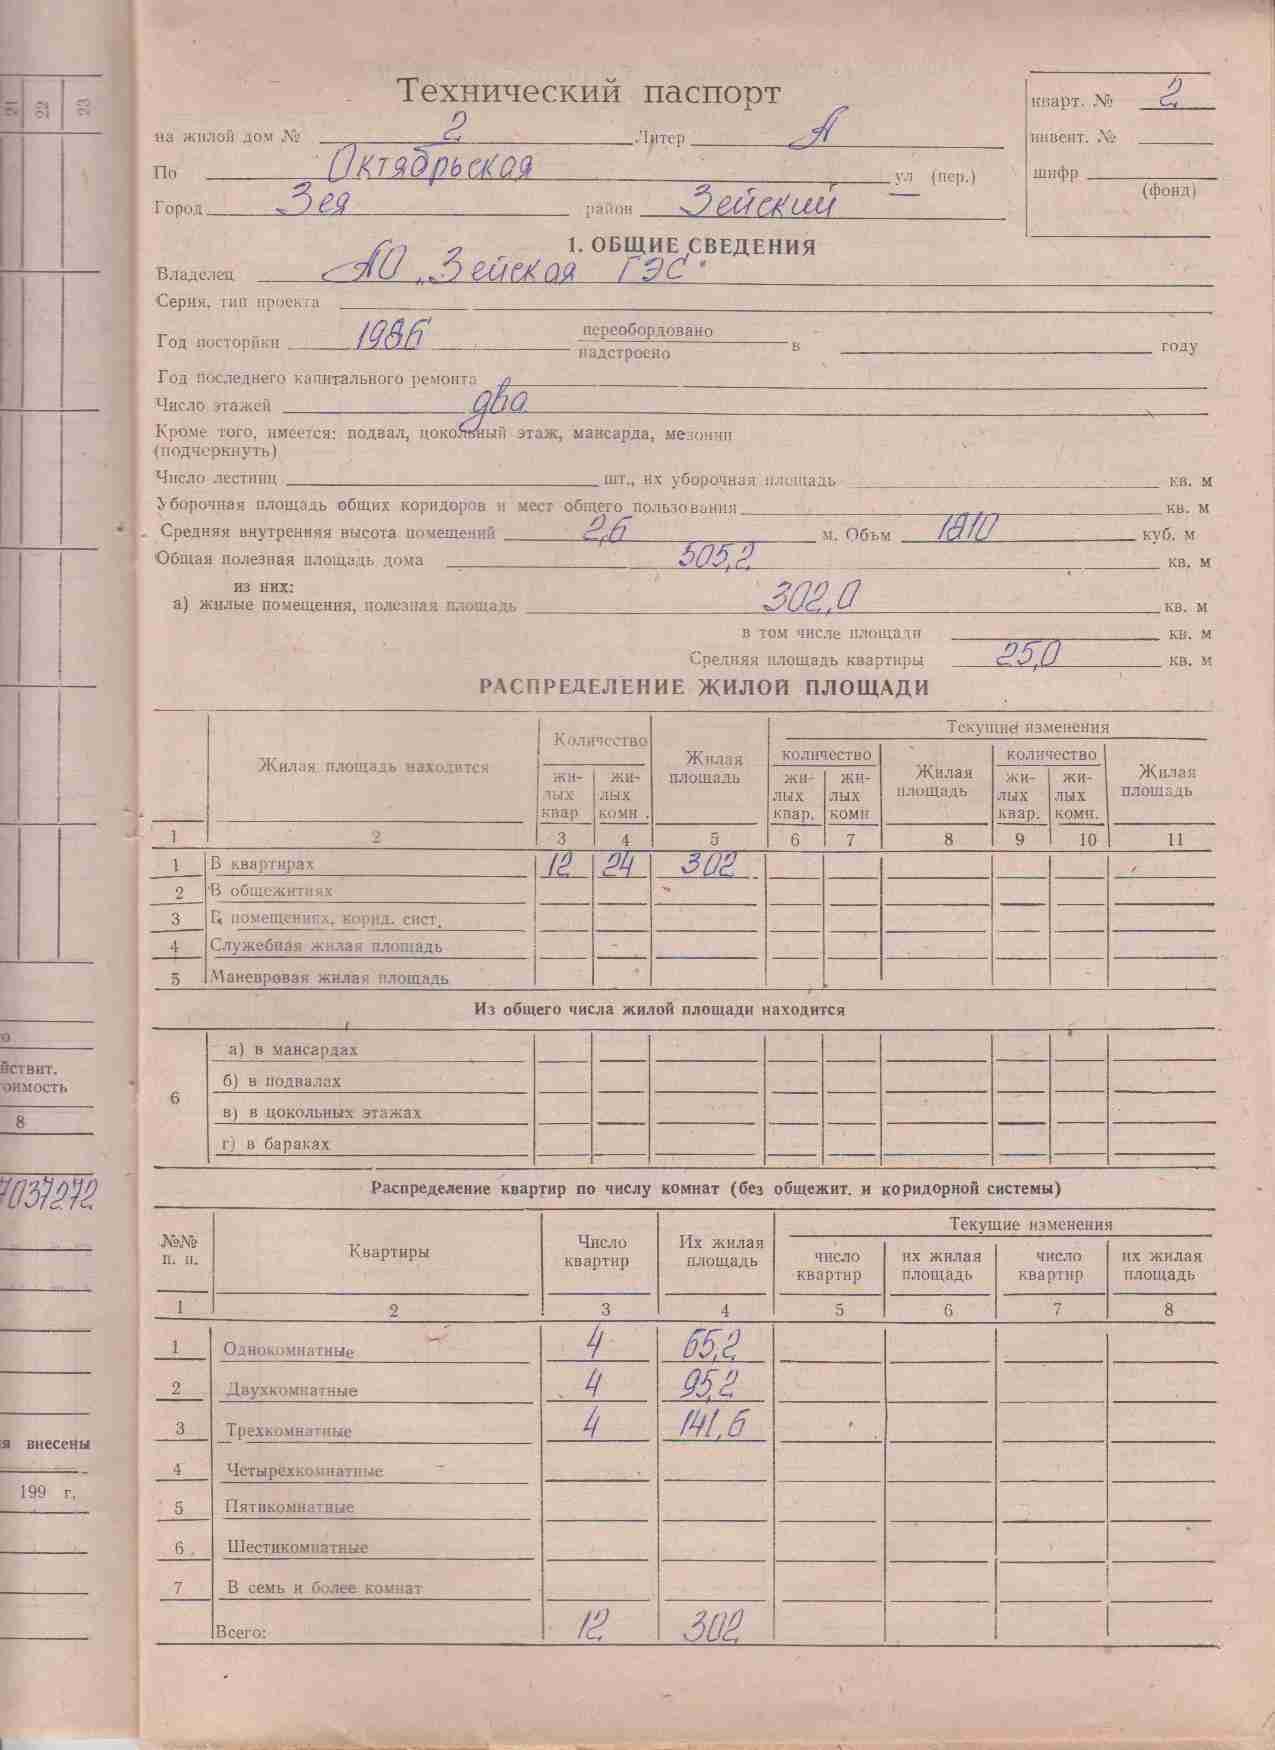 21 22 23
Технический паспорт
кварт. № 2
на жилой дом № 2 Литер А
инвент. №
По Октябрьская ул (пер.)
шифр
(фонд)
Город Зея район Зейский
1. ОБЩИЕ СВЕДЕНИЯ
Владелец АО „Зейская ГЭС"
Серия, тип проекта
Год посторйки 1986 переобордовано
надстроено в году
Год последнего капитального ремонта
Число этажей два
Кроме того, имеется: подвал, цокольный этаж, мансарда, мезонин
(подчеркнуть)
Число лестниц шт., их уборочная площадь кв. м
Уборочная площадь общих коридоров и мест общего пользования кв. м
Средняя внутренняя высота помещений 2,6 м. Объм 1810 куб. м
Общая полезная площадь дома 505,2 кв. м
из них:
а) жилые помещения, полезная площадь 302,0 кв. м
в том числе площади кв. м
Средняя площадь квартиры 25,0 кв. м
РАСПРЕДЕЛЕНИЕ ЖИЛОЙ ПЛОЩАДИ
Жилая площадь находится Количество Жилая площадь Текущие изменения
количество Жилая площадь количество Жилая площадь
жи-лых квар жи-лых комн. жи-лых квар. жи-лых комн жи-лых квар. жи-лых комн.
1 2 3 4 5 6 7 8 9 10 11
1 В квартирах 12 24 302
2 В общежитиях
3 В помещениях, корид. сист.
4 Служебная жилая площадь
5 Маневровая жилая площадь
Из общего числа жилой площади находится
6 а) в мансардах
б) в подвалах
в) в цокольных этажах
г) в бараках
Распределение квартир по числу комнат (без общежит. и коридорной системы)
№№ п. п. Квартиры Число квартир Их жилая площадь Текущие изменения
число квартир их жилая площадь число квартир их жилая площадь
1 2 3 4 5 6 7 8
1 Однокомнатные 4 65,2
2 Двухкомнатные 4 95,2
3 Трехкомнатные 4 141,6
4 Четырехкомнатные
5 Пятикомнатные
6 Шестикомнатные
7 В семь и более комнат
Всего: 12 302
йствит.
тоимость
8
7037272
я внесены
199 г.